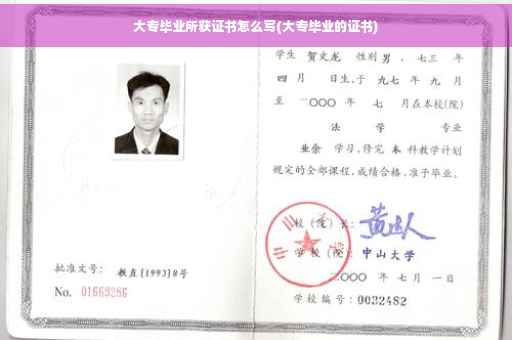 大专毕业所获证书怎么写(大专毕业的证书)
学生 贺文龙 性别 男 、七三 年
四 月 日生,于 九七 年 九 月
至 二〇〇〇 年 七 月在本校(院)
法 学 专业
业余 学习,修完 本 科教学计划
规定的全部课程,成绩合格,准予毕业。
校(院)长:
学校(院): 中山大学
二〇〇〇 年 七 月 一 日
批准文号: 教直(1993)8号
No. 01663286
学校编号: 0032482